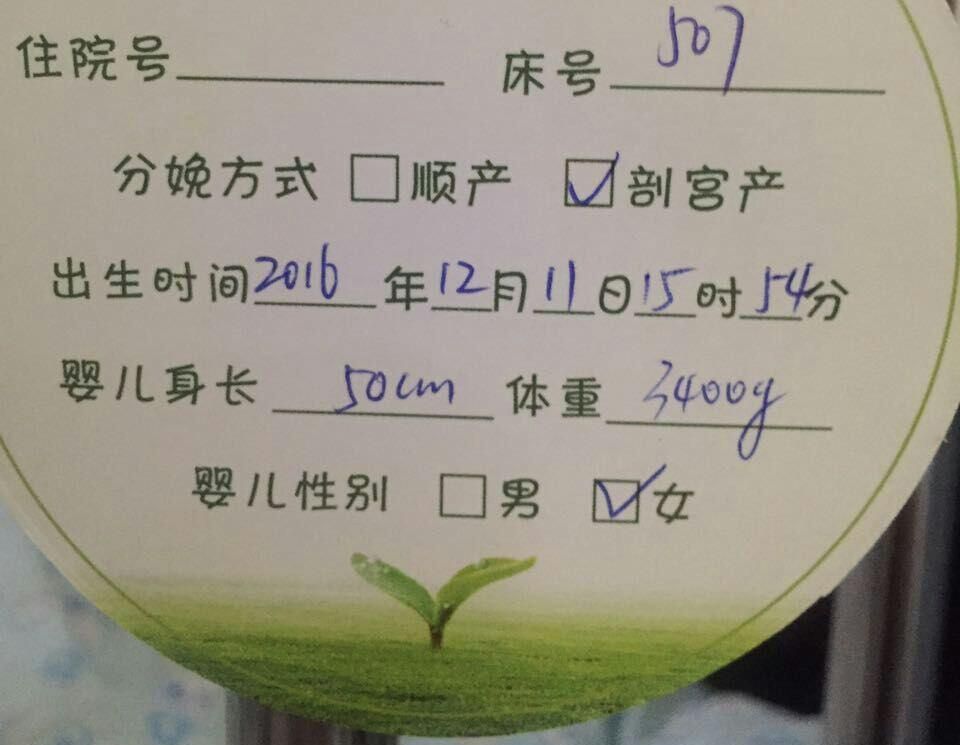 住院号 床号 507
分娩方式 □顺产 ☑剖宫产
出生时间2016年12月11日15时54分
婴儿身长 50cm 体重 3400g
婴儿性别 □男 ☑女